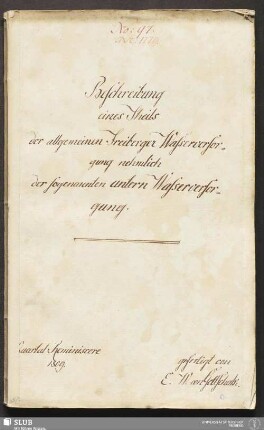 No: 97.
Beschreibung
eines Theils
der allgemeinen Freiberger Wasserversor-
gung nehmlich
der sogenannten untern Wasserversor-
gung.
Quartal Reminiscere
1809.
gefertigt von
E. W.
SLUB